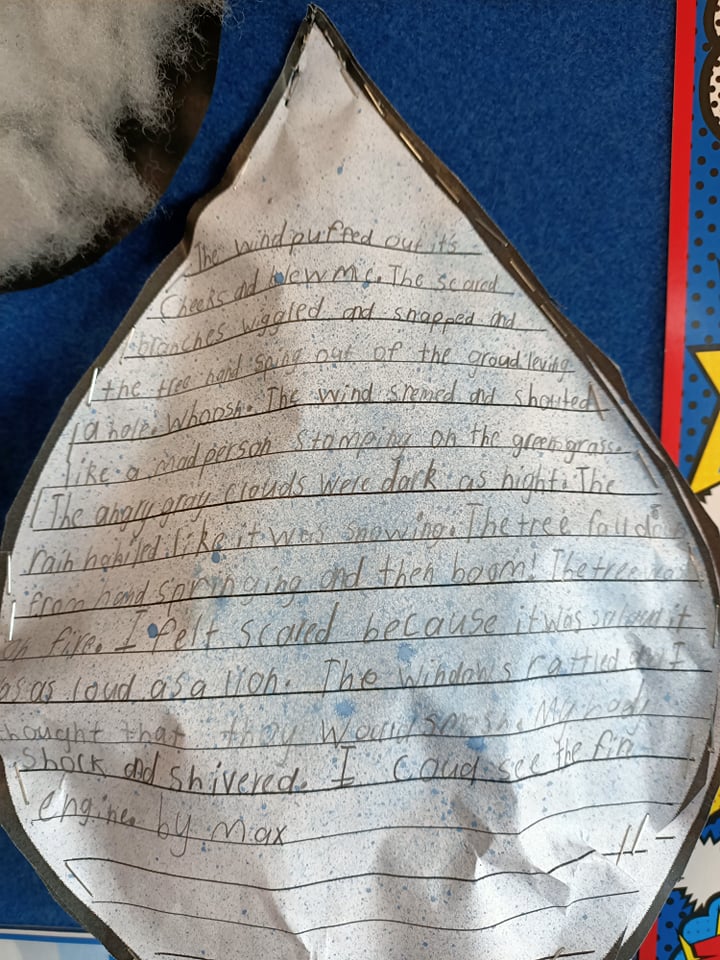 The wind puffed out its
Cheeks and blew me. The scared
branches wiggled and snapped and
the tree hand sping out of the groud leving
a hole. Whoosh. The wind sremed and shouted
like a mad person stomping on the green grass.
The angry gray clouds were dark as night. The
rain hamled like it was snowing. The tree fall
from hand springing and then boom! The tree
on fire. I felt scared because it was
as as loud as a lion. The windows rattled I
thought that they would My body
Shock and shivered. I coud see the firn
engine. by max